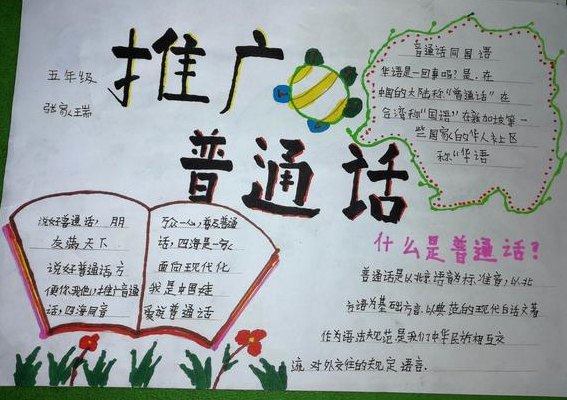 推广
普通话
五年级
张家瑞
普通话同国语
华语是一回事吗？是，在
中国的大陆称“普通话”在
台湾称“国语”在新加坡等一
些国家的华人社区
称“华语
说好普通话，朋
友满天下
说好普通话方
便你我他，推广普通
话，四海同音
万众一心，普及普通
话，四海是一家
面向现代化
我是中国娃
爱说普通话
什么是普通话？
普通话是以北京语音为标准音，以北
方语为基础方言，以典范的现代白话文著
作为语法规范是我们中华民族相互交
流 对外交往的规定语言.